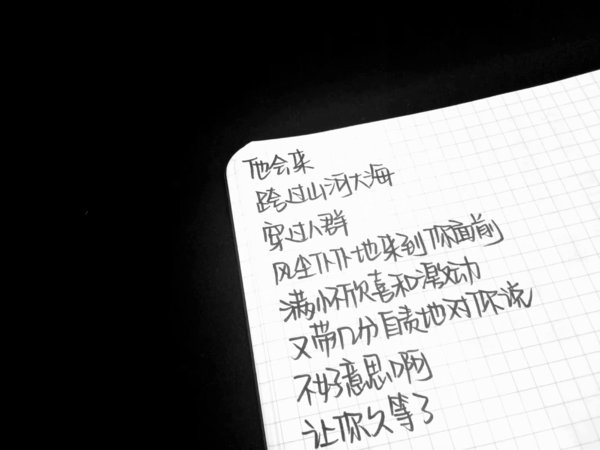 他会来
跨过山河大海
穿过人群
风尘仆仆地来到你面前
满怀欣喜和激动
又带几分自责地对你说
不好意思啊
让你久等了